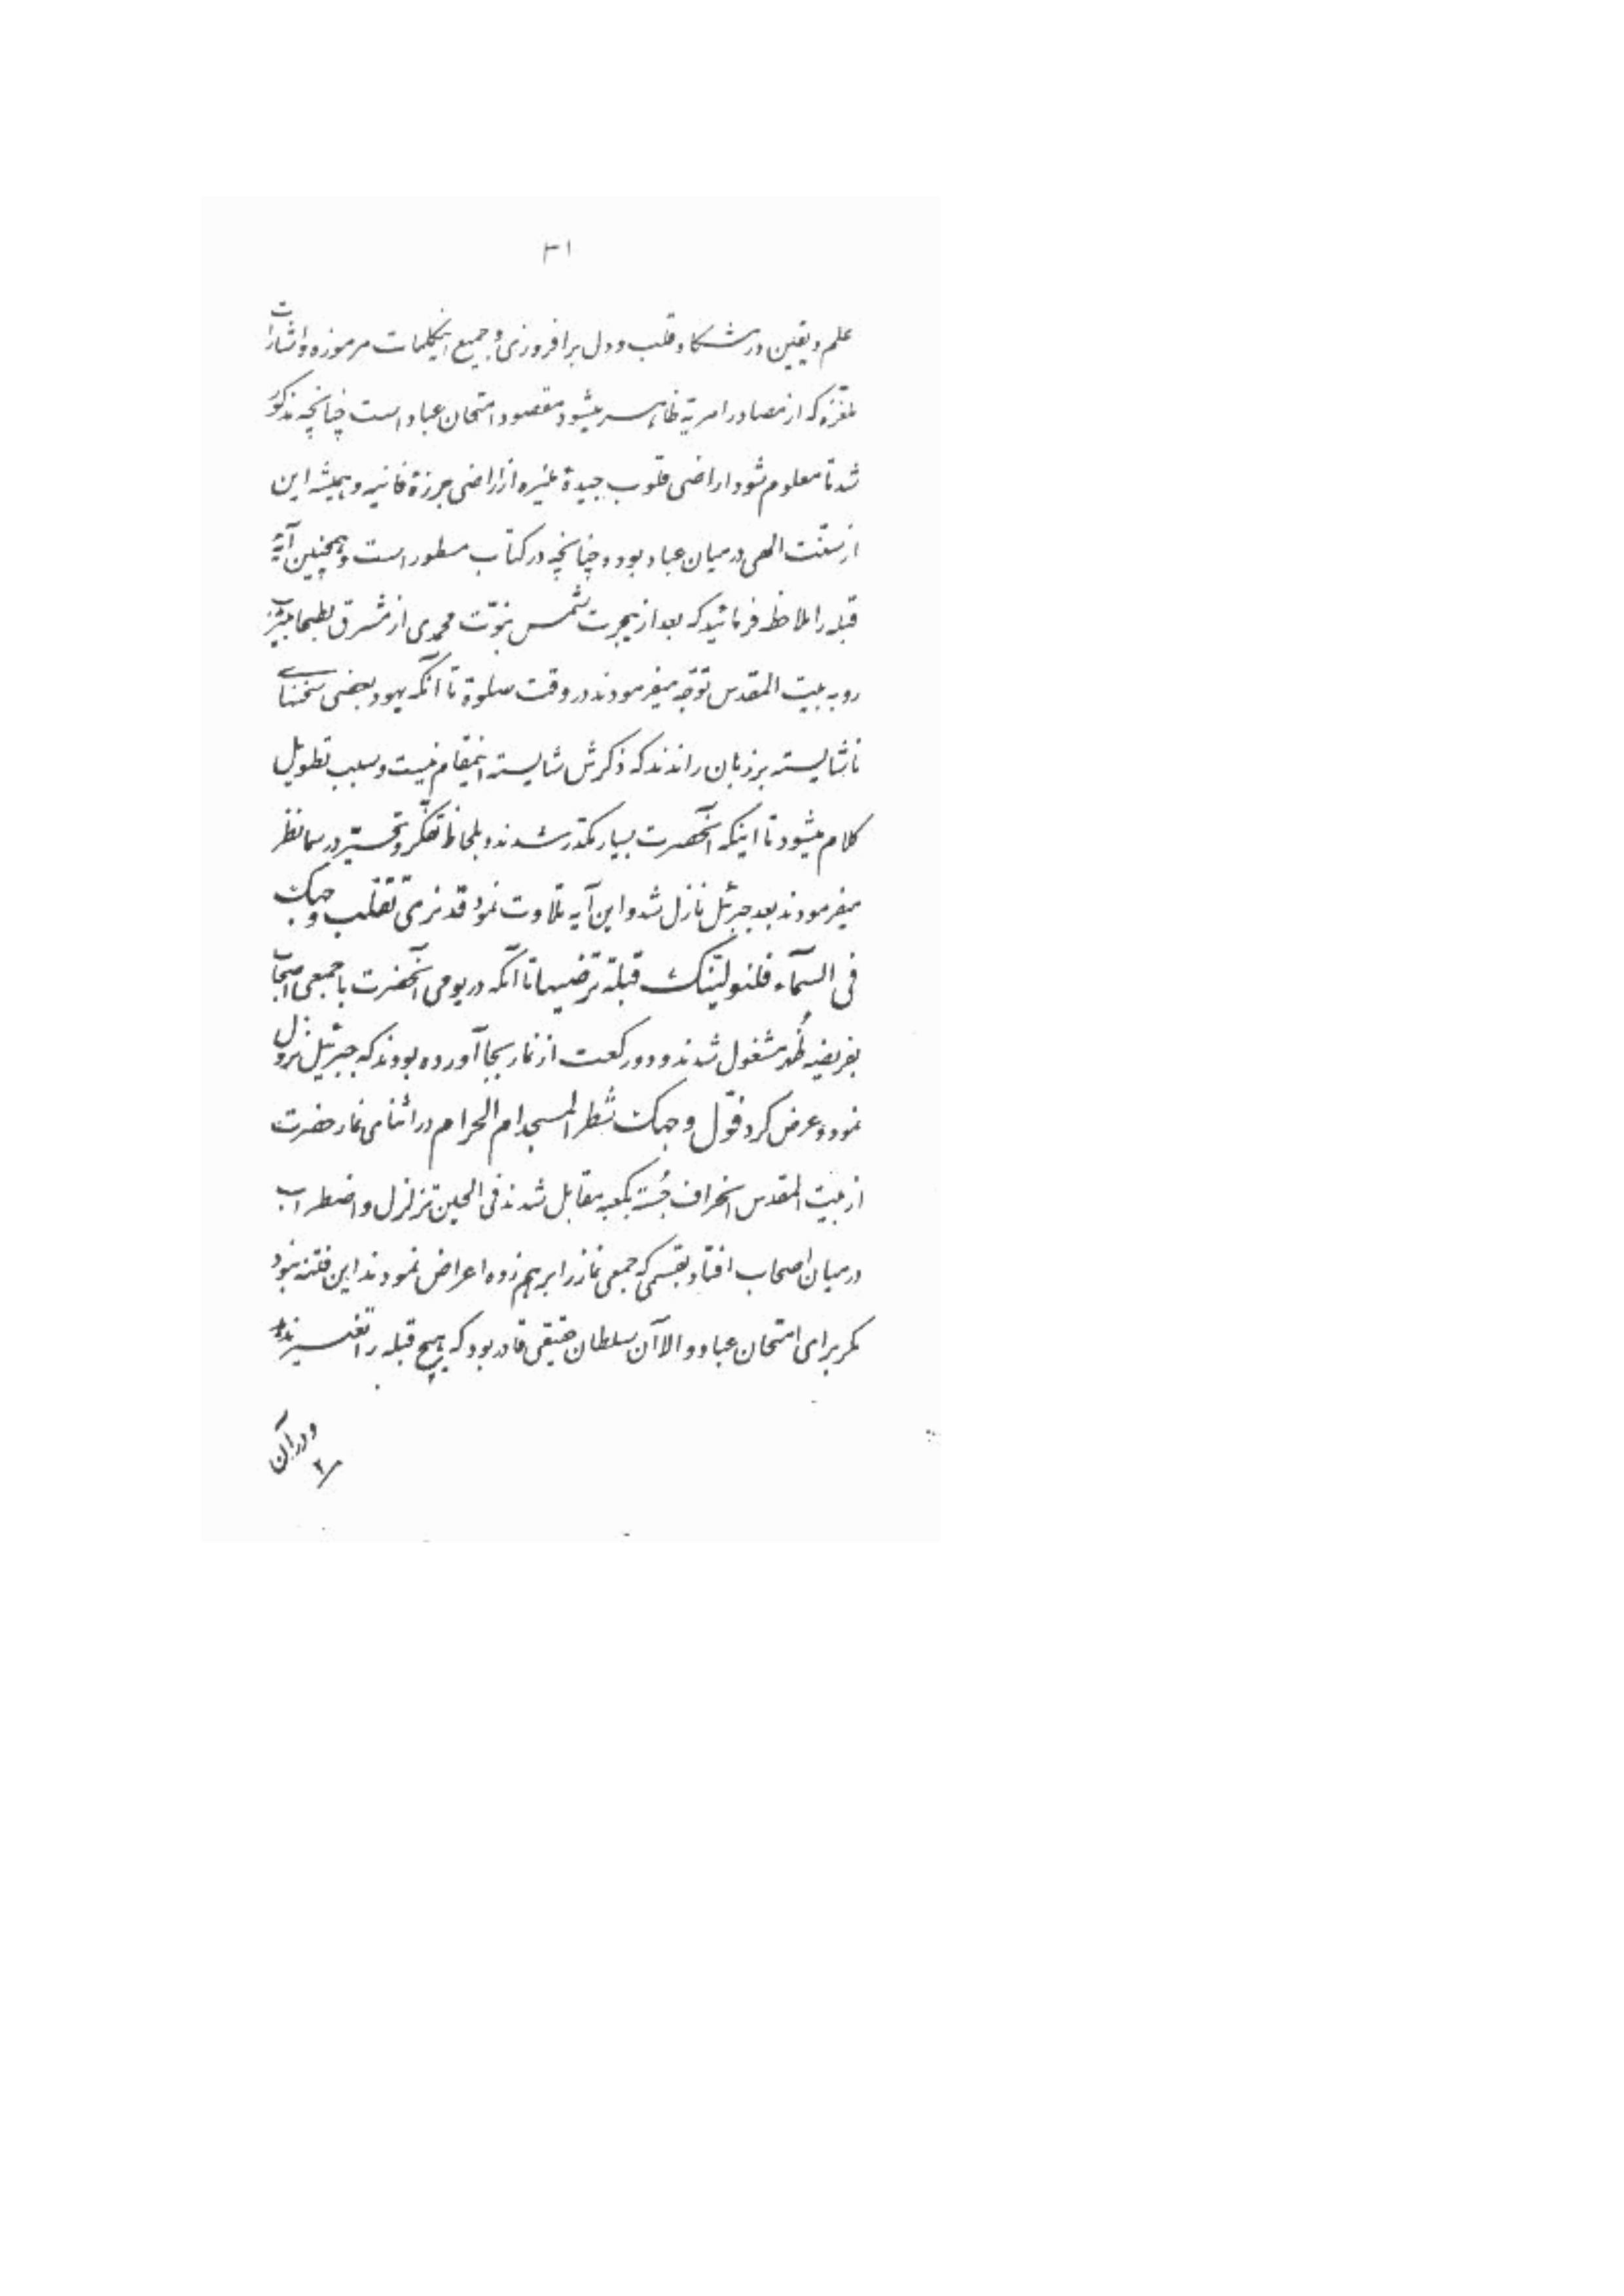 ۳۱
علم و یقین در مشکاو قلب و دل برافروزی و جمیع اینکلمات مرموزه و اشارات
ملغزه که از مصادر امریّه ظاهر میشود مقصود امتحان عباد است چنانچه مذکور
شد تا معلوم شود اراضی قلوب جیدهٔ منیره از اراضی جرزهٔ فانیه و همیشه این
از سنّت الهی در میان عباد بوده چنانچه در کتاب مسطور است و همچنین آیهٔ
قبله را ملاحظه فرمائید که بعد از هجرت شمس نبوّت محمدی از مشرق بطحا بیثرب
رو به بیت المقدس توجّه میفرمودند در وقت صلوة تا آنکه یهود بعضی سخنهای
ناشایسته بر زبان راندند که ذکرش شایسته اینمقام نیست و سبب تطویل
کلام میشود تا اینکه آنحضرت بسیار مکدّر شدند و بلحاظ تفکّر و تحسّر در سما نظر
میفرمودند بعد جبرئیل نازل شد و این آیه تلاوت نمود قد نری تقلّب وجهک
فی السّمآء فلنولّینّک قبلة ترضیها تا آنکه در یومی آنحضرت با جمعی اصحاب
بفریضه ظُهر مشغول شدند و دو رکعت از نماز بجا آورده بودند که جبرئیل نزول
نمود و عرض کرد فولّ وجهک شطر المسجد الحرام در اثنای نماز حضرت
از بیت المقدس انحراف جُسته بکعبه مقابل شدند فی الحین تزلزل و اضطراب
در میان اصحاب افتاد بقسمی که جمعی نماز را بر هم زده اعراض نمودند این فتنه نبود
مگر برای امتحان عباد و الا آن سلطان حقیقی قادر بود که هیچ قبله را تغییر ندهد
و در آن